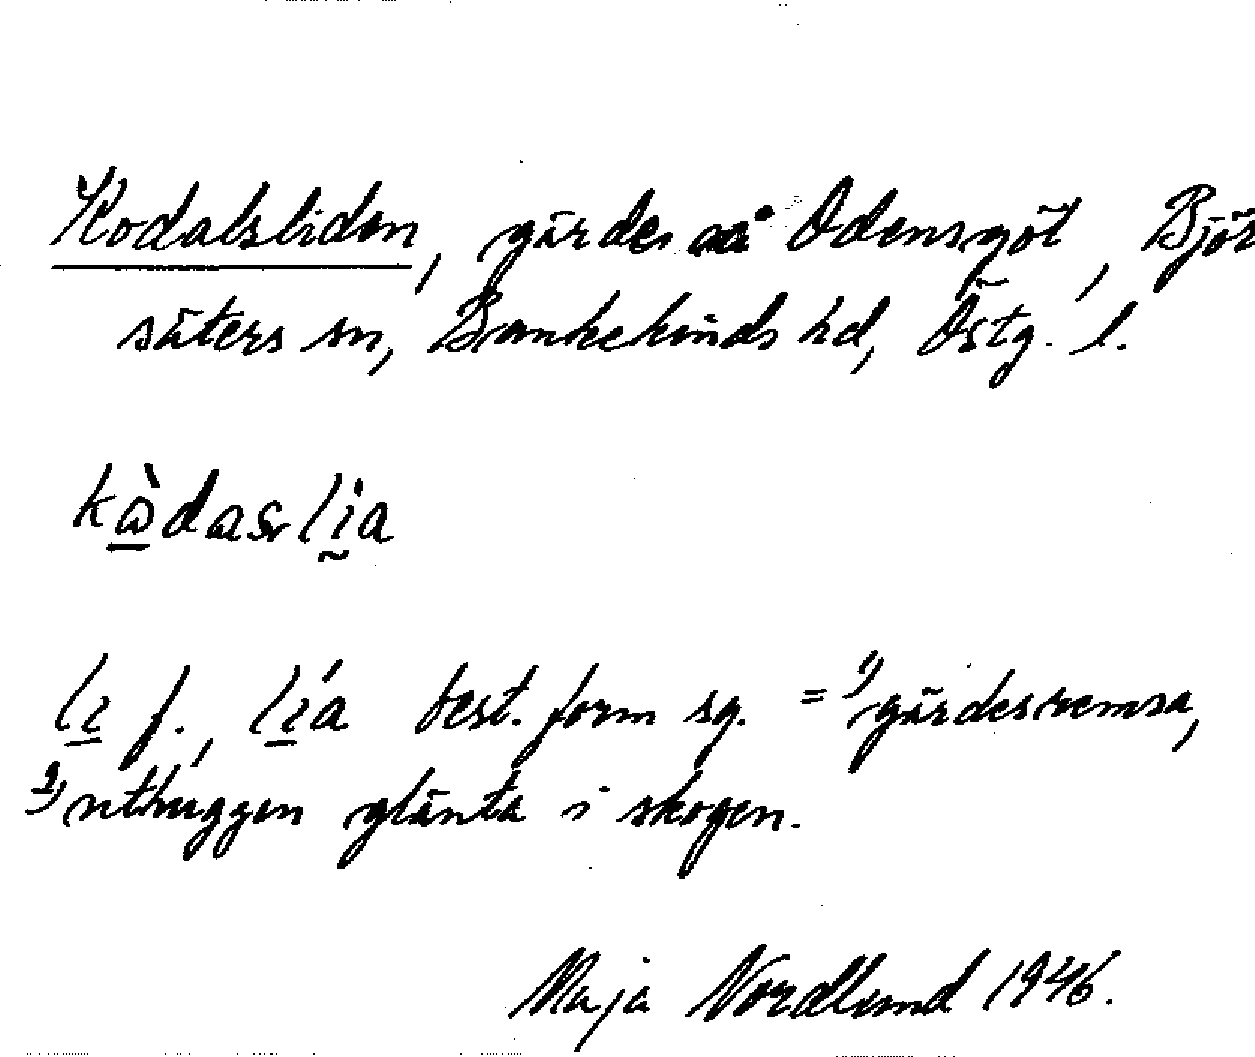 Kodalsliden, gärde på Odensgöl, Björ
säters sn, Bankekinds hd, Östg. l.
kòdasslìa
li f., lía best. form sg. = 1) gärdesremsa,
2) uthuggen glänta i skogen.
Maja Nordlund 1946.